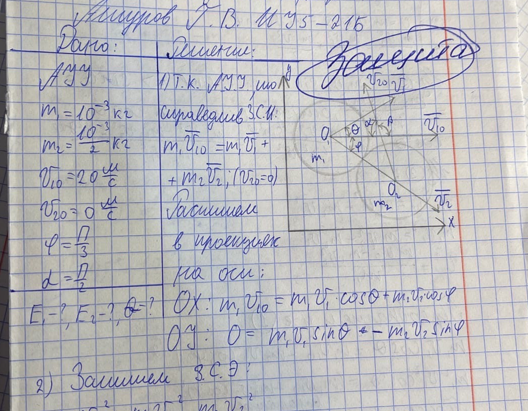 Ашуров Г. В. ИУ5-21Б
Дано:
АУУ
m₁ = 10⁻³ кг
m₂ = 10⁻³/2 кг
v₁₀ = 20 м/с
v₂₀ = 0 м/с
φ = π/3
α = π/2
E₁-?, E₂-?, θ=?
Решение:
1) Т.к. АУУ, то
справедлив З.С.И:
m₁v̅₁₀ = m₁v̅₁ +
+ m₂v̅₂, (v₂₀=0)
Распишем
в проекциях
на оси:
OX: m₁v₁₀ = m₁v₁ cosθ + m₂v₂ cosφ
OY: 0 = m₁v₁ sinθ - m₂v₂ sinφ
Защита
y
v̅₂₀
v̅₁
O₁
θ
α
β
v̅₁₀
m₁
φ
O₂
m₂
v̅₂
X
2) Запишем З.С.Э: